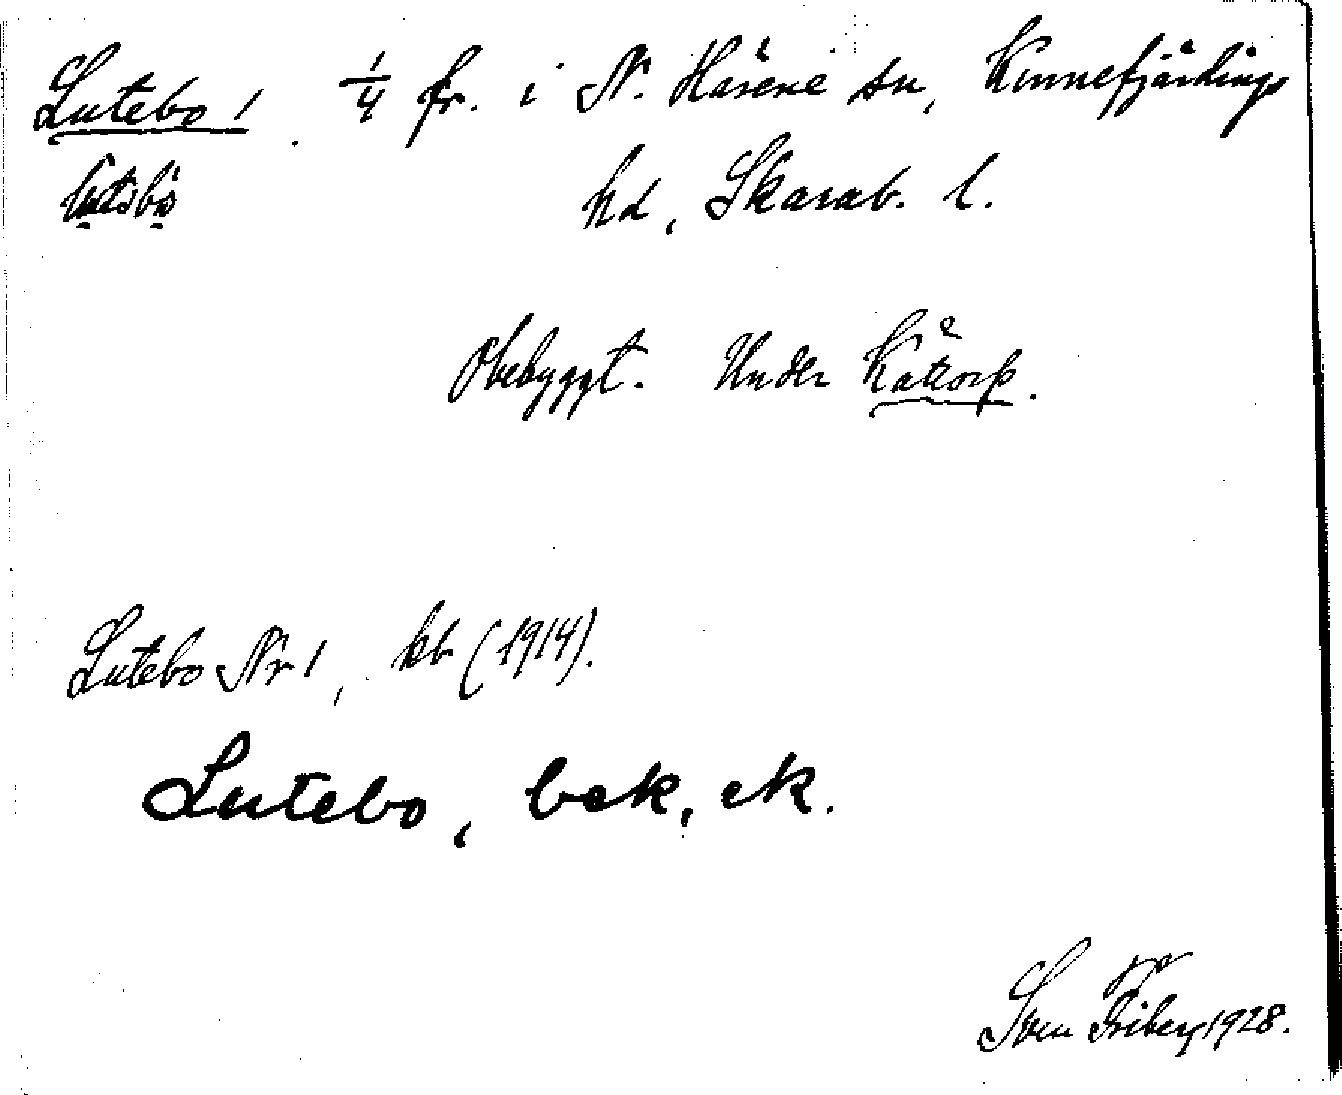 Lutebo 1. 1/4 fr. i N. Härene sn, Kinnefjärdings
hd, Skarab. l.
Obebyggt. Under Kättorp.
Lutebo Nr 1, kb (1914).
Lutebo, bek, ek.
Sven Friberg 1928.